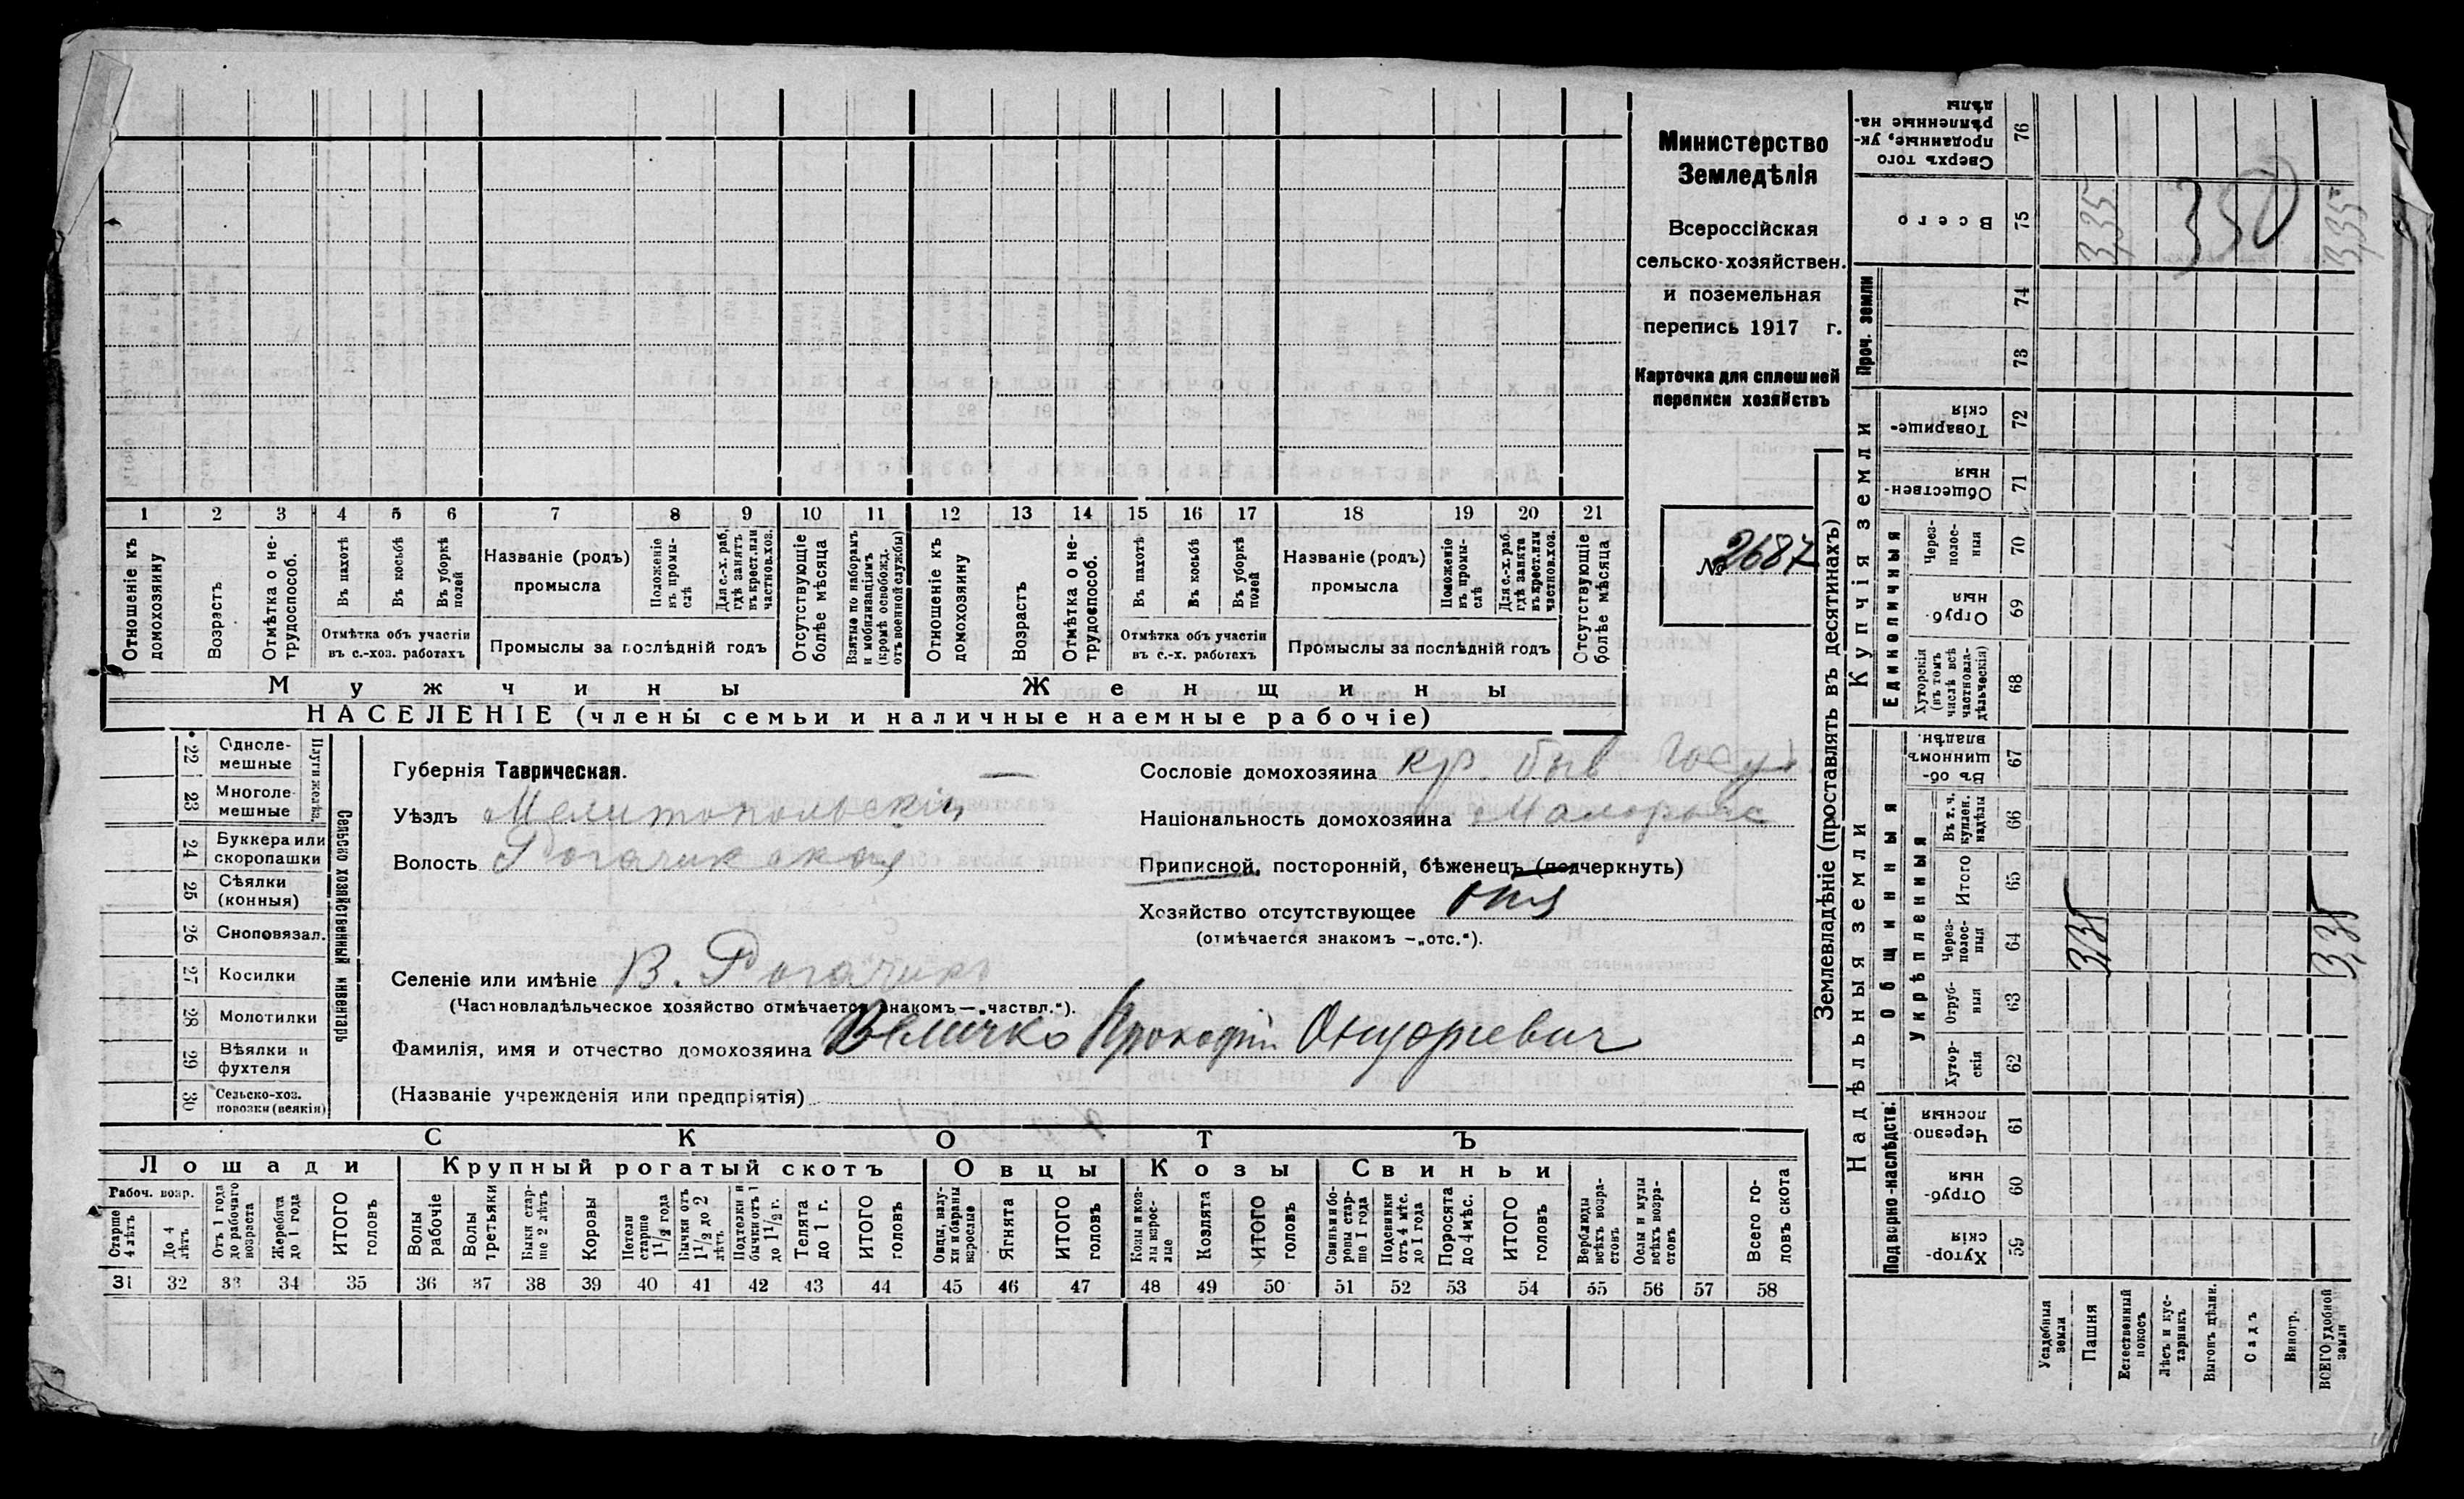 Министерство
Земледѣлія
Всероссійская
сельско-хозяйствен.
и поземельная
перепись 1917 г.
Карточка для сплошной
переписи хозяйствъ
№ 2687
1 2 3 4 5 6 7 8 9 10 11 12 13 14 15 16 17 18 19 20 21
Отношеніе къ домохозяину
Возрастъ
Отмѣтка о не-трудоспособ.
Въ пахотѣ
Въ косьбѣ
Въ уборкѣ полей
Отмѣтка объ участіи въ с.-хоз. работахъ
Названіе (родъ) промысла
Положеніе въ промы-слѣ
Для с.-х. раб. гдѣ занятъ въ крест. или частнов. хоз.
Промыслы за послѣдній годъ
Отсутствующіе болѣе мѣсяца
Взятые по наборамъ и мобилизаціямъ (кромѣ освобожд. отъ военной службы)
Отношеніе къ домохозяину
Возрастъ
Отмѣтка о не-трудоспособ.
Въ пахотѣ
Въ косьбѣ
Въ уборкѣ полей
Отмѣтка объ участіи въ с.-х. работахъ
Названіе (родъ) промысла
Положеніе въ промы-слѣ
Для с.-х. раб. гдѣ занята въ крест. или частнов. хоз.
Промыслы за послѣдній годъ
Отсутствующіе болѣе мѣсяца
Мужчины Женщины
НАСЕЛЕНІЕ (члены семьи и наличные наемные рабочіе)
22 Одноле-мешные
23 Многоле-мешные
Плуги желѣз.
24 Буккера или скоропашки
25 Сѣялки (конныя)
26 Сноповязал.
27 Косилки
28 Молотилки
29 Вѣялки и фухтеля
30 Сельско-хоз. повозки (всякія)
Сельско хозяйственный инвентарь
Губернія Таврическая.
Уѣздъ Мелитопольскій
Волость Рогачикская
Селеніе или имѣніе В. Рогачикъ
(Частновладѣльческое хозяйство отмѣчается знакомъ — „частвл.“).
Фамилія, имя и отчество домохозяина Величко Прокофій Онуфріевич
(Названіе учрежденія или предпріятія)
Сословіе домохозяина кр. быв Госуд.
Національность домохозяина Малоросс
Приписной, посторонній, бѣженецъ (подчеркнуть)
Хозяйство отсутствующее отс
(отмѣчается знакомъ — „отс.“).
СКОТЪ
Лошади Крупный рогатый скотъ Овцы Козы Свиньи
Рабоч. возр.
Старше 4 лѣтъ
До 4 лѣтъ
Отъ 1 года до рабочаго возраста
Жеребята до 1 года
ИТОГО головъ
Волы рабочіе
Волы третьяки
Быки стар-ше 2 лѣтъ
Коровы
Нетели старше 1 1/2 года
Бычки отъ 1 1/2 до 2 лѣтъ
Подтелки и бычки отъ 1 до 1 1/2 г.
Телята до 1 г.
ИТОГО головъ
Овцы, валу-хи и бараны взрослые
Ягнята
ИТОГО головъ
Козы и коз-лы взрос-лые
Козлята
ИТОГО головъ
Свиньи и бо-ровы стар-ше 1 года
Подсвинки отъ 4 мѣс. до 1 года
Поросята до 4 мѣс.
ИТОГО головъ
Верблюды всѣхъ возра-стовъ
Ослы и мулы всѣхъ возра-стовъ
Всего го-ловъ скота
31 32 33 34 35 36 37 38 39 40 41 42 43 44 45 46 47 48 49 50 51 52 53 54 55 56 57 58
Землевладѣніе (проставлять въ десятинахъ)
Надѣльныя земли Купчія земли Проч. земли
Подворно-наслѣдств.
Общинныя
Укрѣпленныя
Единоличныя
Хутор-скія 59
Отруб-ныя 60
Черезпо лосныя 61
Хутор-скія 62
Отруб-ныя 63
Через-полос-ныя 64
Итого 65
Въ т. ч. куплен. надѣлы 66
Въ об-щинномъ владѣн. 67
Хуторскія (въ томъ числѣ всѣ частновла-дѣльческія) 68
Отруб-ныя 69
Через-полос-ныя 70
Обществен-ныя 71
Товарище-скія 72
73
74
Всего 75
Сверхъ того проданные, ук-рѣпленные на-дѣлы 76
Усадебныя земли
Пашня
Естественный покосъ
Лѣсъ и кус-тарникъ
Выгонъ цѣлин.
Садъ
Виногр.
ВСЕГО удобной земли
3,35 3,35
3,35 350 3,35